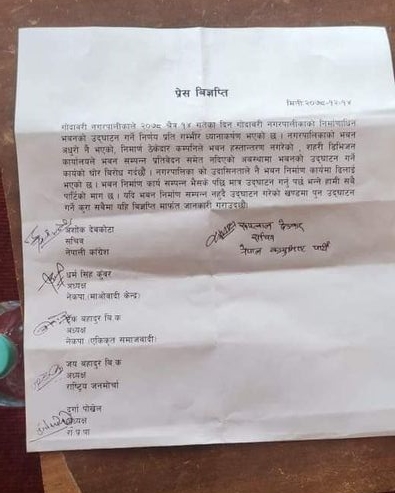 प्रेस बिज्ञप्ति
मिती:२०७८-१२-१४
गोदावरी नगरपालीकाले २०७८ चैत्र १४ गतेका दिन गोदावरी नगरपालीकाको निर्माणाधिन
भवनको उद्घाटन गर्ने निर्णय प्रति गम्भीर ध्यानाकर्षण भएको छ । नगरपालिकाको भवन
अधुरो नै भएको, निर्माण ठेकेदार कम्पनिले भवन हस्तान्तरण नगरेको , शहरी डिभिजन
कार्यालयले भवन सम्पन्न प्रतिवेदन समेत नदिएको अवस्थामा भवनको उद्घाटन गर्ने
कार्यको घोर विरोध गर्दछौं । नगरपालिका को उदासिनताले नै भवन निर्माण कार्यमा ढिलाई
भएको छ । भवन निर्माण कार्य सम्पन्न भैसके पछि मात्र उद्घाटन गर्नु पर्छ भन्ने हामी सबै
पार्टिको माग छ । यदि भवन निर्माण सम्पन्न नहुदै उद्घाटन गरेको खण्डमा पुन उद्घाटन
गर्ने कुरा सबैमा यहि बिज्ञप्ति मार्फत जानकारी गराउदछौं।
अशोक देवकोटा
सचिव
नेपाली काग्रेस
सचिव
नेपाल कम्युनिष्ट पार्टी
धर्म सिंह कुंवर
अध्यक्ष
नेकपा (माओवादी केन्द्र)
टेक बहादुर बि.क
अध्यक्ष
नेकपा (एकिकृत समाजवादी)
जय बहादुर बि.क
अध्यक्ष
राष्ट्रिय जनमोर्चा
दुर्गा पोखेल
अध्यक्ष
रा प्र पा